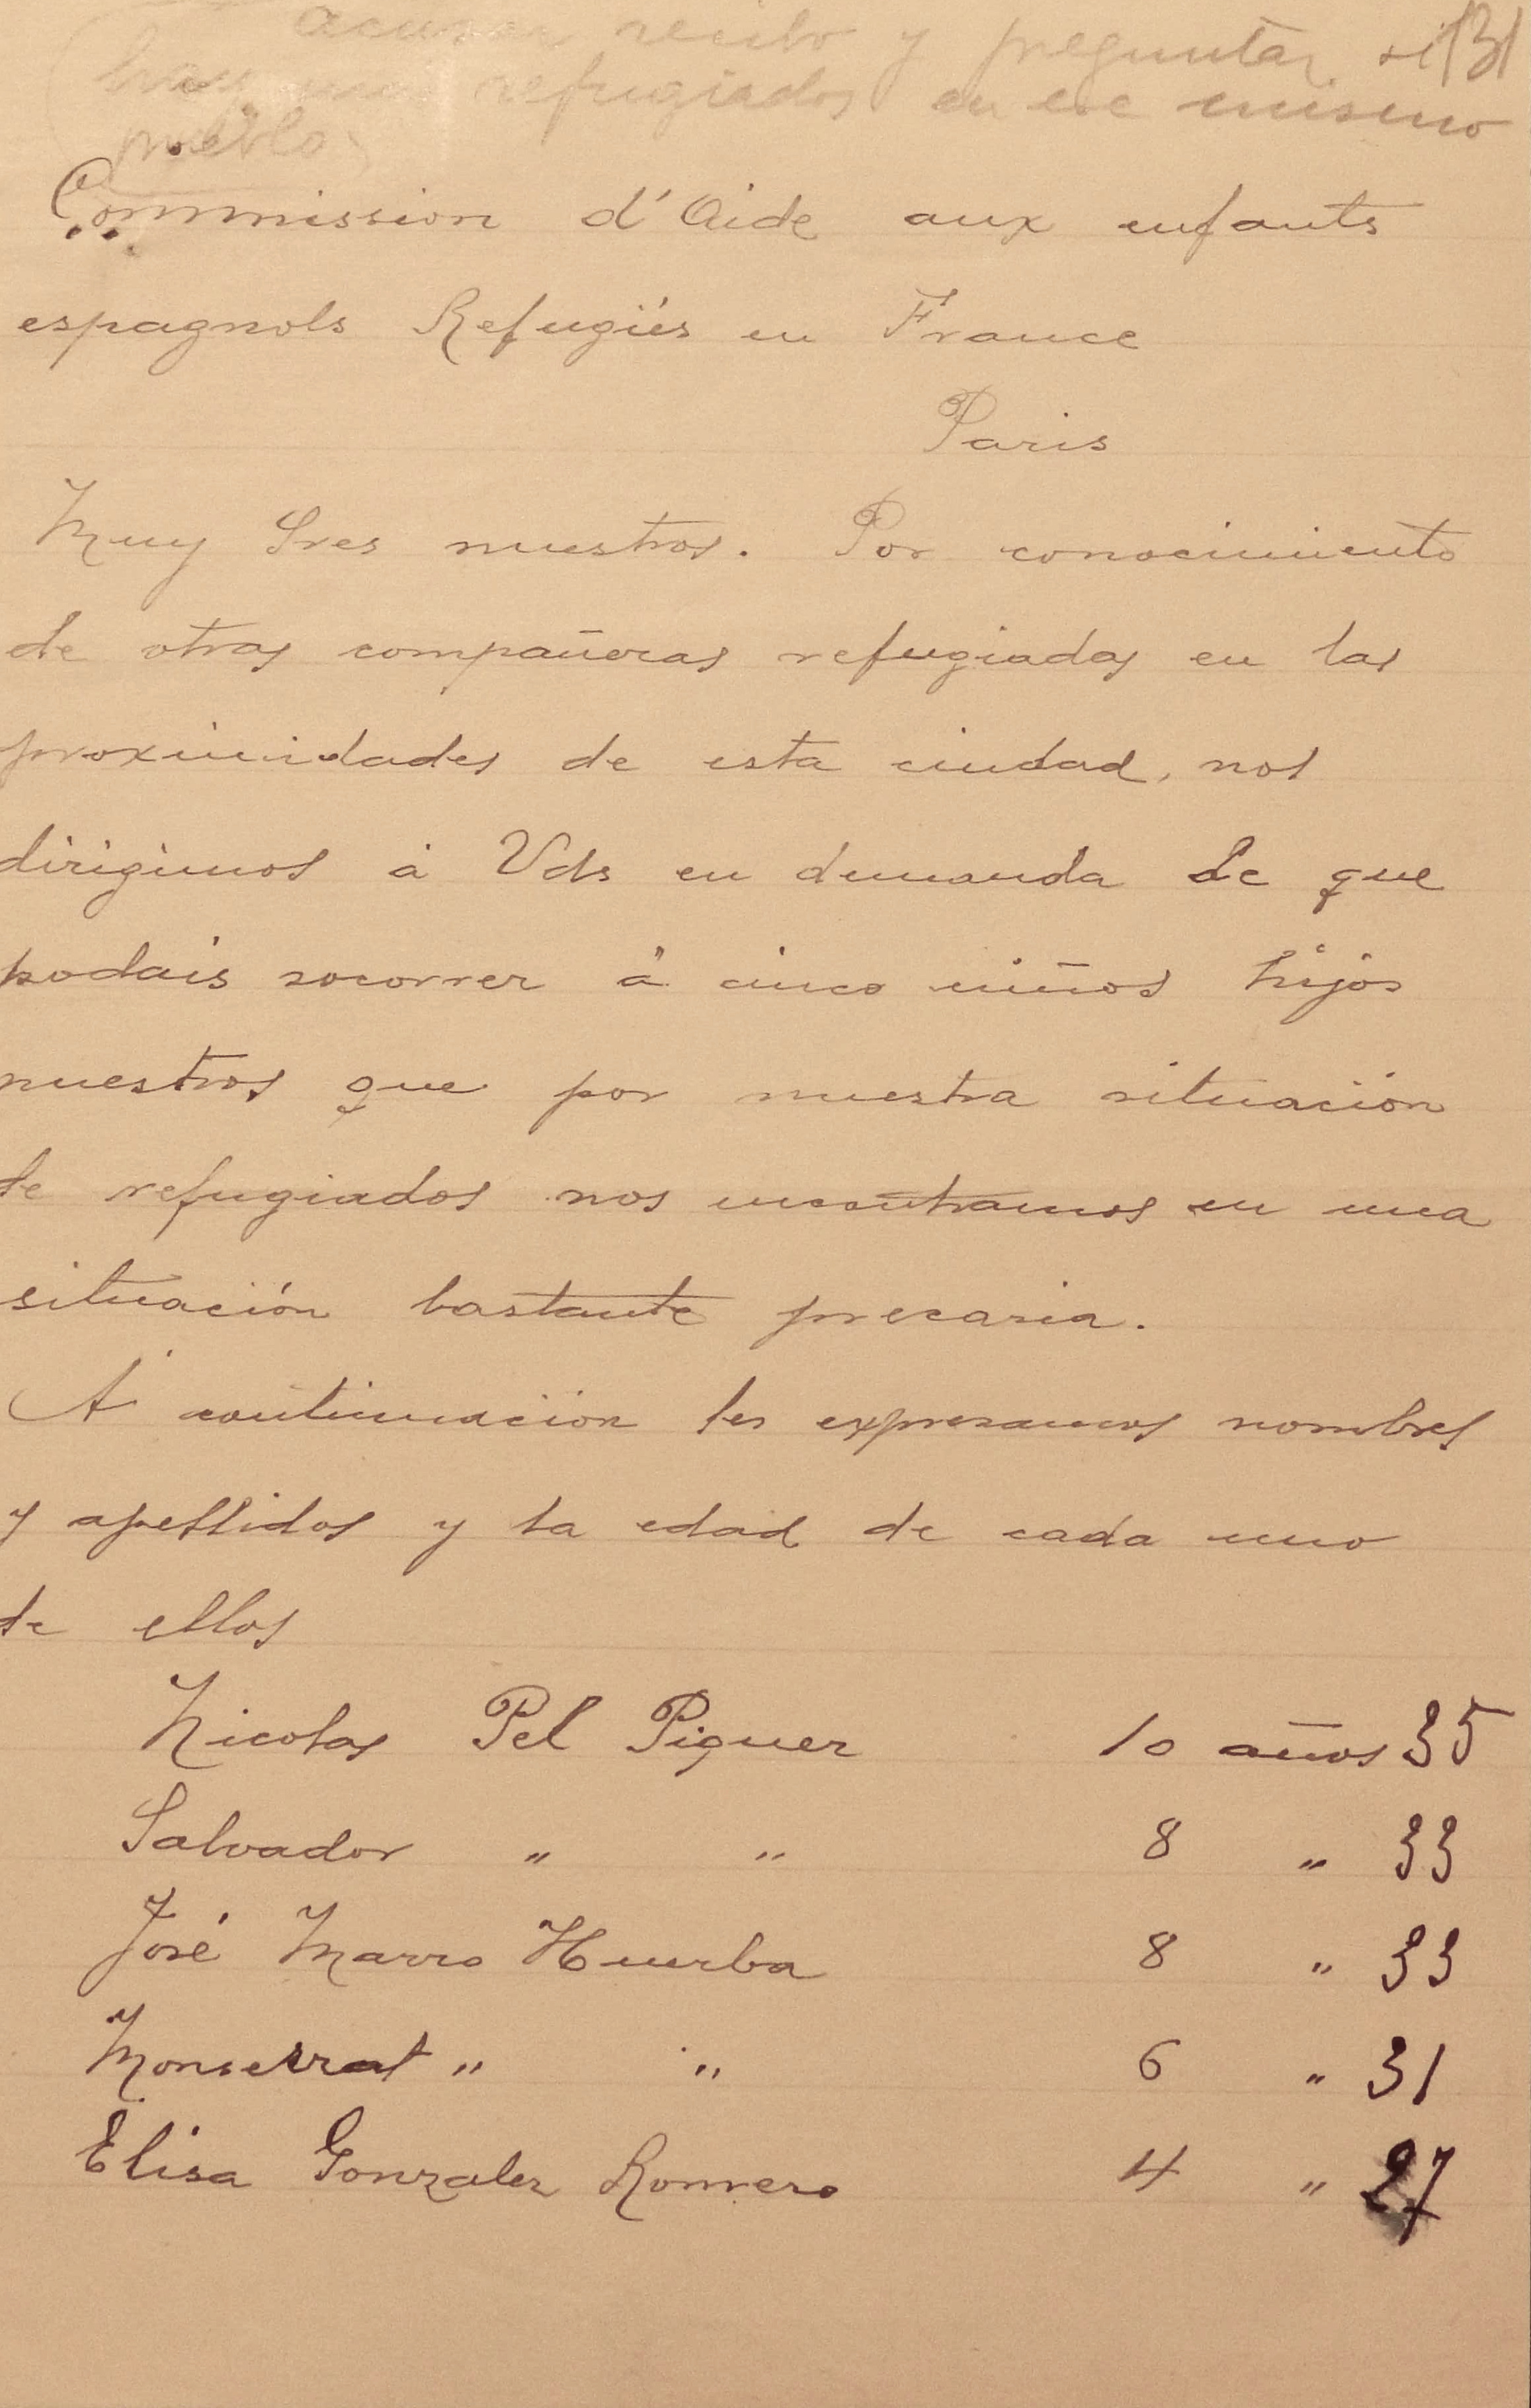 acusar recibo y preguntar si 131
hay mas refugiados en ese mismo
pueblo
Commission d'Aide aux enfants
espagnols Refugiés en France
Paris
Muy Sres nuestros. Por conocimiento
de otras compañeras refugiadas en las
proximidades de esta ciudad, nos
dirigimos á Vds en demanda de que
podais socorrer á cinco niños hijos
nuestros que por nuestra situación
de refugiados nos encontramos en una
situación bastante precaria.
A continuación les expresamos nombres
y apellidos y la edad de cada uno
de ellos
Nicolas Pel Piquer 10 años 35
Salvador " " 8 " 33
José Marro Huerba 8 " 33
Monserrat " " 6 " 31
Elisa Gonzalez Romero 4 " 27